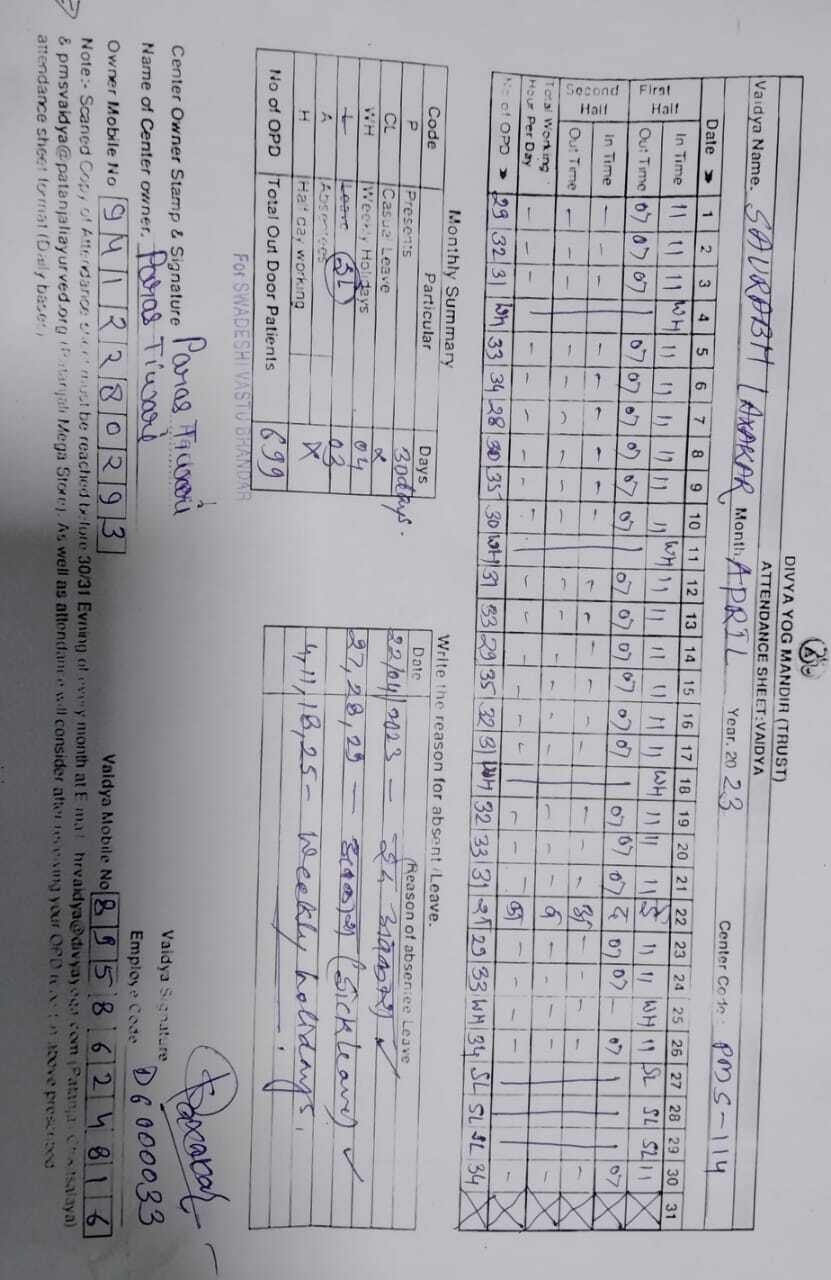 DIVYA YOG MANDIR (TRUST)
ATTENDANCE SHEET:VAIDYA
Vaidya Name. SAURABH LAXAKAR Month. APRIL Year. 2023 Center Code : PMS-114
Date 1 2 3 4 5 6 7 8 9 10 11 12 13 14 15 16 17 18 19 20 21 22 23 24 25 26 27 28 29 30 31
First Half
In Time 11 11 11 WH 11 11 11 11 11 11 WH 11 11 11 11 11 11 WH 11 11 11 ई 11 11 WH 11 SL SL SL 11
Out Time 07 07 07 07 07 07 07 07 07 07 07 07 07 07 07 07 07 07 द 07 07 - 07 07
Second Half
In Time - - - - - - - - - - - - - - - - - - अ - - - - -
Out Time - - - - - - - - - - - - - - - - - - व - - - - -
Total Working Hour Per Day - - - - - - - - - - - - - - - - - - का - - - - -
No of OPD 29 32 31 WH 33 34 28 30 35 30 WH 31 33 29 35 32 31 WH 32 33 31 29 33 WH 34 SL SL SL 34
Monthly Summary
Code Particular Days
P Presents 30days.
CL Casual Leave
WH Weekly Holidays 04
L Leave SL 03
A Absentees X
H Half day working
No of OPD Total Out Door Patients 699
For SWADESHI VASTU BHANDAR
Write the reason for absent /Leave.
Date Reason of absentee Leave
22/04/2023 - ईद अवकाश ✓
27,28,29 - अवकाश (Sick leave) ✓
4,11,18,25- Weekly holidays.
Center Owner Stamp & Signature Paras Tiwari
Name of Center owner. Paras Tiwari
Owner Mobile No 9412280293
Vaidya Signature Laxakar
Employe Code D6000033
Vaidya Mobile No 8958624816
Note:- Scaned Copy of Attendance sheet must be reached before 30/31 Evning of every month at E-mail hrvaidya@divyayoga.com (Patanjali Chikitsalaya)
& pmsvaidya@patanjaliayurved.org (Patanjali Mega Store). As well as attendance will consider after receiving your OPD in above prescribed
attendance sheet format (Daily bases)